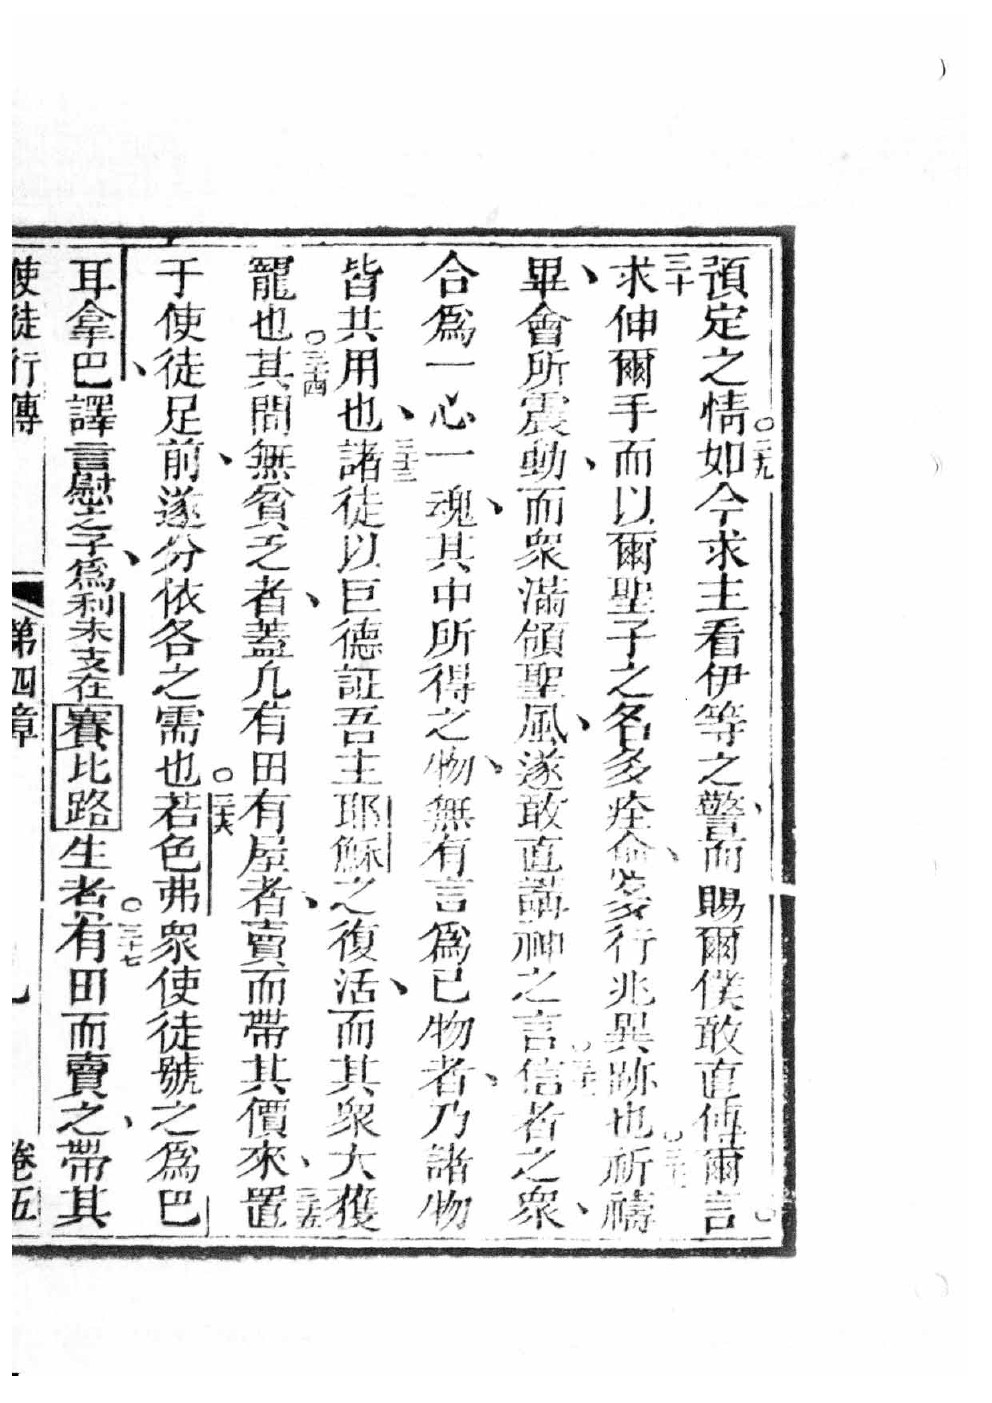 預定之情○二九如今求主看伊等之警、而賜爾僕敢直傳爾言
三十求伸爾手而以爾聖子之名多痊、多行兆異跡也○三一祈禱
畢、會所震動、而衆滿領聖風、遂敢直講神之言○三二信者之衆、
合爲一心一魂、其中所得之物、無有言爲已物者、乃諸物
皆共用也、三三諸徒以巨德証吾主耶穌之復活、而其衆大獲
寵也○三四其間無貧乏者、蓋凡有田有屋者、賣而帶其價來、三五置
于使徒足前、遂分依各之需也○三六若色弗衆使徒號之爲巴
耳拿巴、譯言慰之子、爲利未支在賽比路生者○三十七有田而賣之、帶其
使徒行傳 第四章 九 卷五